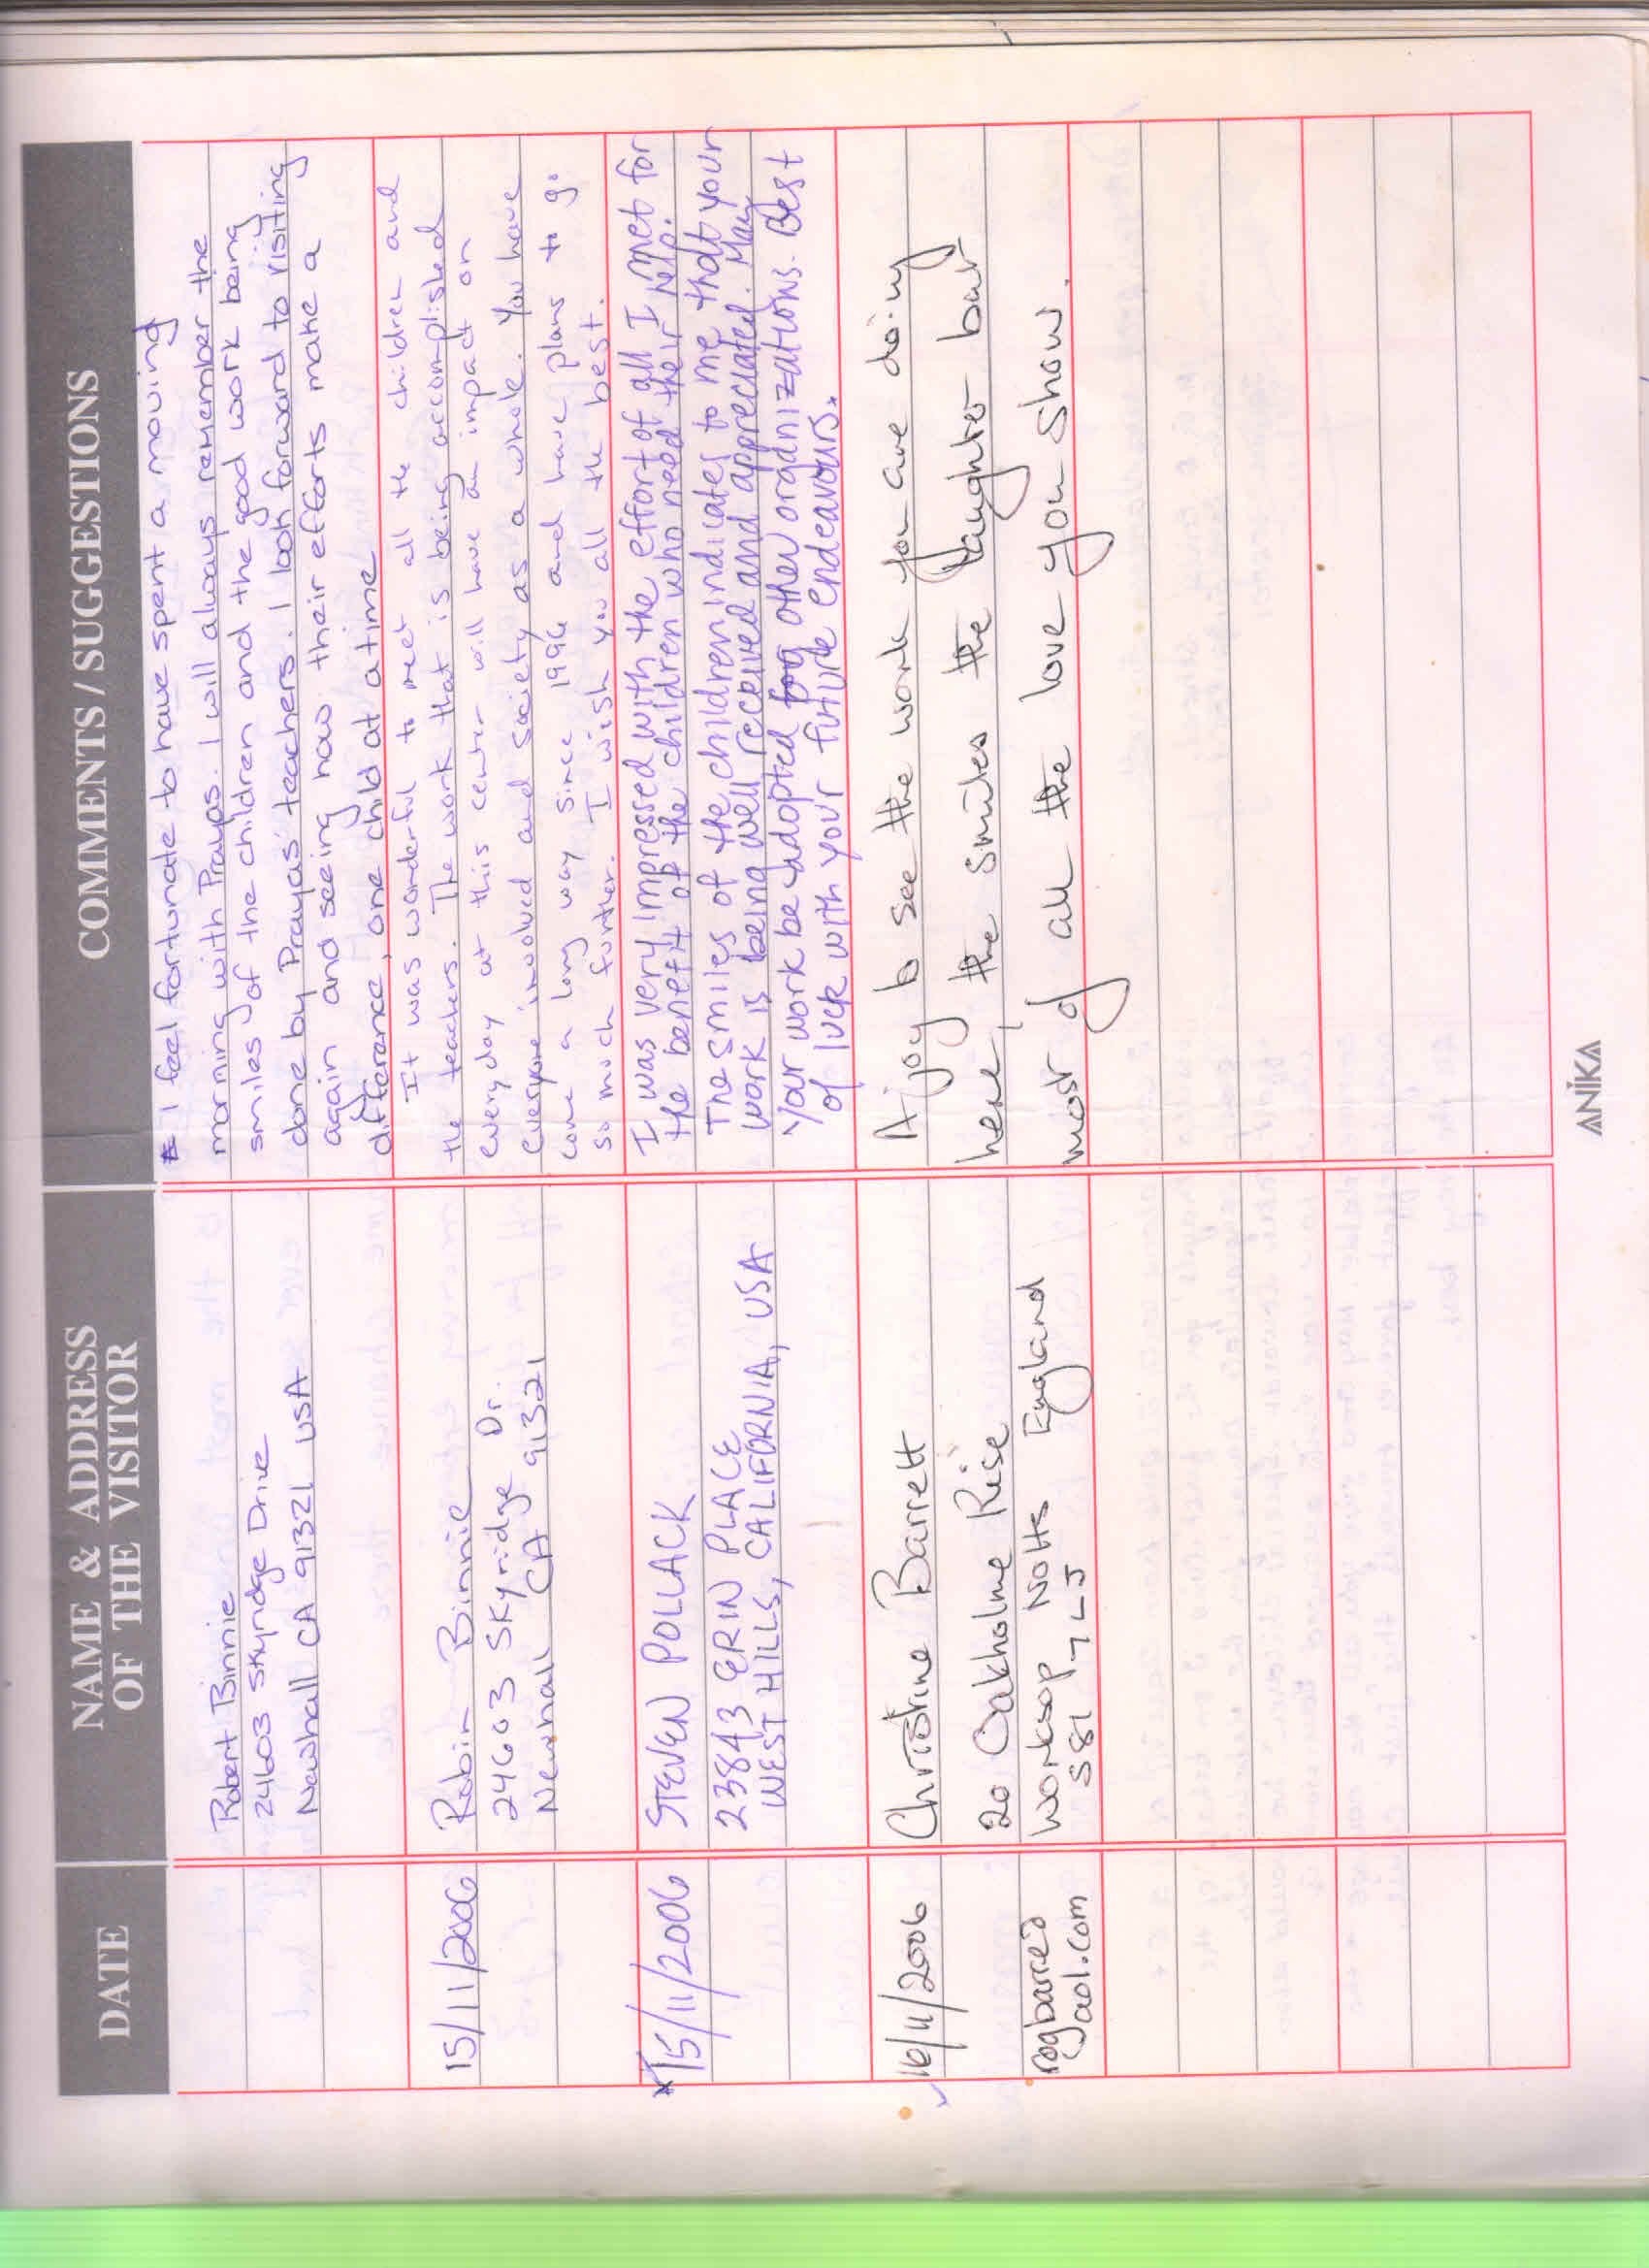 DATE
NAME & ADDRESS
OF THE VISITOR
COMMENTS / SUGGESTIONS
Robert Binnie
24603 Skyridge Drive
Newhall CA 91321 USA
I feel fortunate to have spent a moving
morning with Prayas. I will always remember the
smiles of the children and the good work being
done by Prayas' teachers. I look forward to visiting
again and seeing how their efforts make a
difference, one child at a time
15/11/2006
Robin Binnie
24603 Skyridge Dr.
Newhall CA 91321
It was wonderful to meet all the children and
the teachers. The work that is being accomplished
everyday at this center will have an impact on
everyone involved and society as a whole. You have
come a long way since 1996 and have plans to go
so much further. I wish you all the best.
15/11/2006
STEVEN POLLACK
23843 ERIN PLACE
WEST HILLS, CALIFORNIA, USA
I was very impressed with the effort of all I met for
the benefit of the children who need their help.
The smiles of the children indicates to me that your
work is being well received and appreciated. May
your work be adopted by other organizations. Best
of luck with your future endeavours.
16/11/2006
Christine Barrett
20 Oakholme Rise
Worksop Notts England
S81 7LJ
regbarred
aol.com
A joy to see the work you are doing
here, the smiles the laughter but
most of all the love you show.
ANIKA